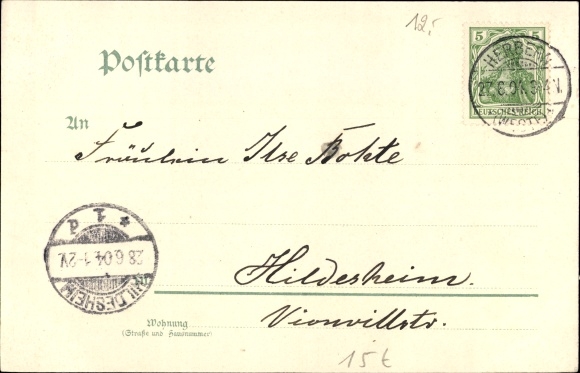 12.-
Postkarte
5 5
DEUTSCHES REICH
HERBERN
27.6.04. 3-4 V.
(WESTF.)
An
Fräulein Ilse Bokte
* 1 d
28.6.04. 1-2V.
HILDESHEIM
Hildesheim.
Wohnung
(Straße und Hausnummer)
Vionvillstr.
15 t